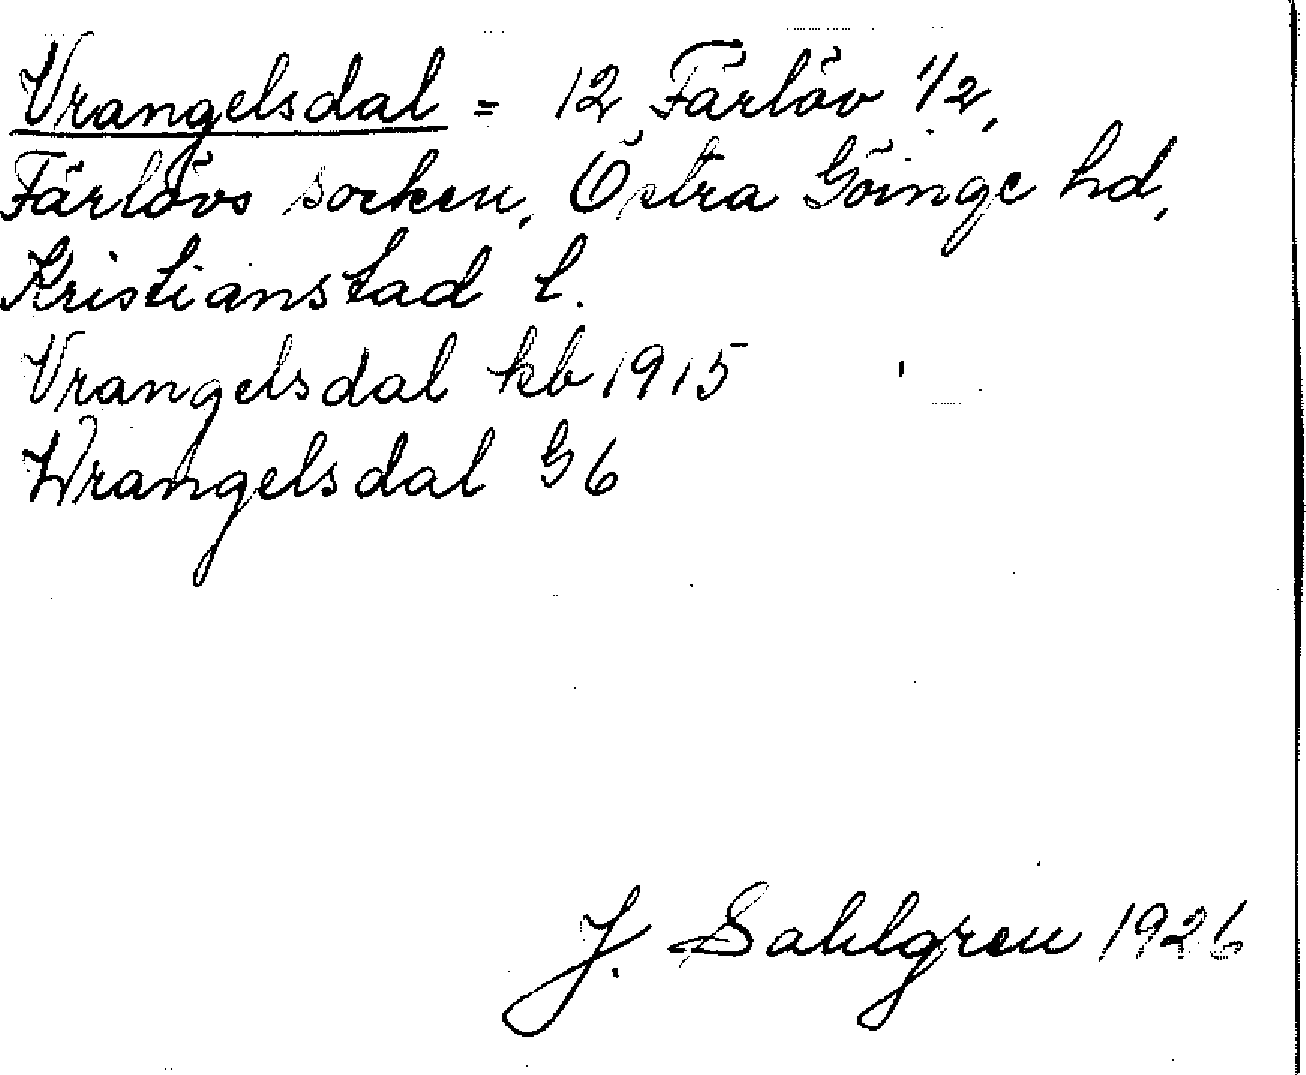 Vrangelsdal = 12 Färlöv 1/2,
Färlövs socken, Östra Göinge hd,
Kristianstad l.
Vrangelsdal kb 1915
Wrangelsdal G 6
J. Sahlgren 1926